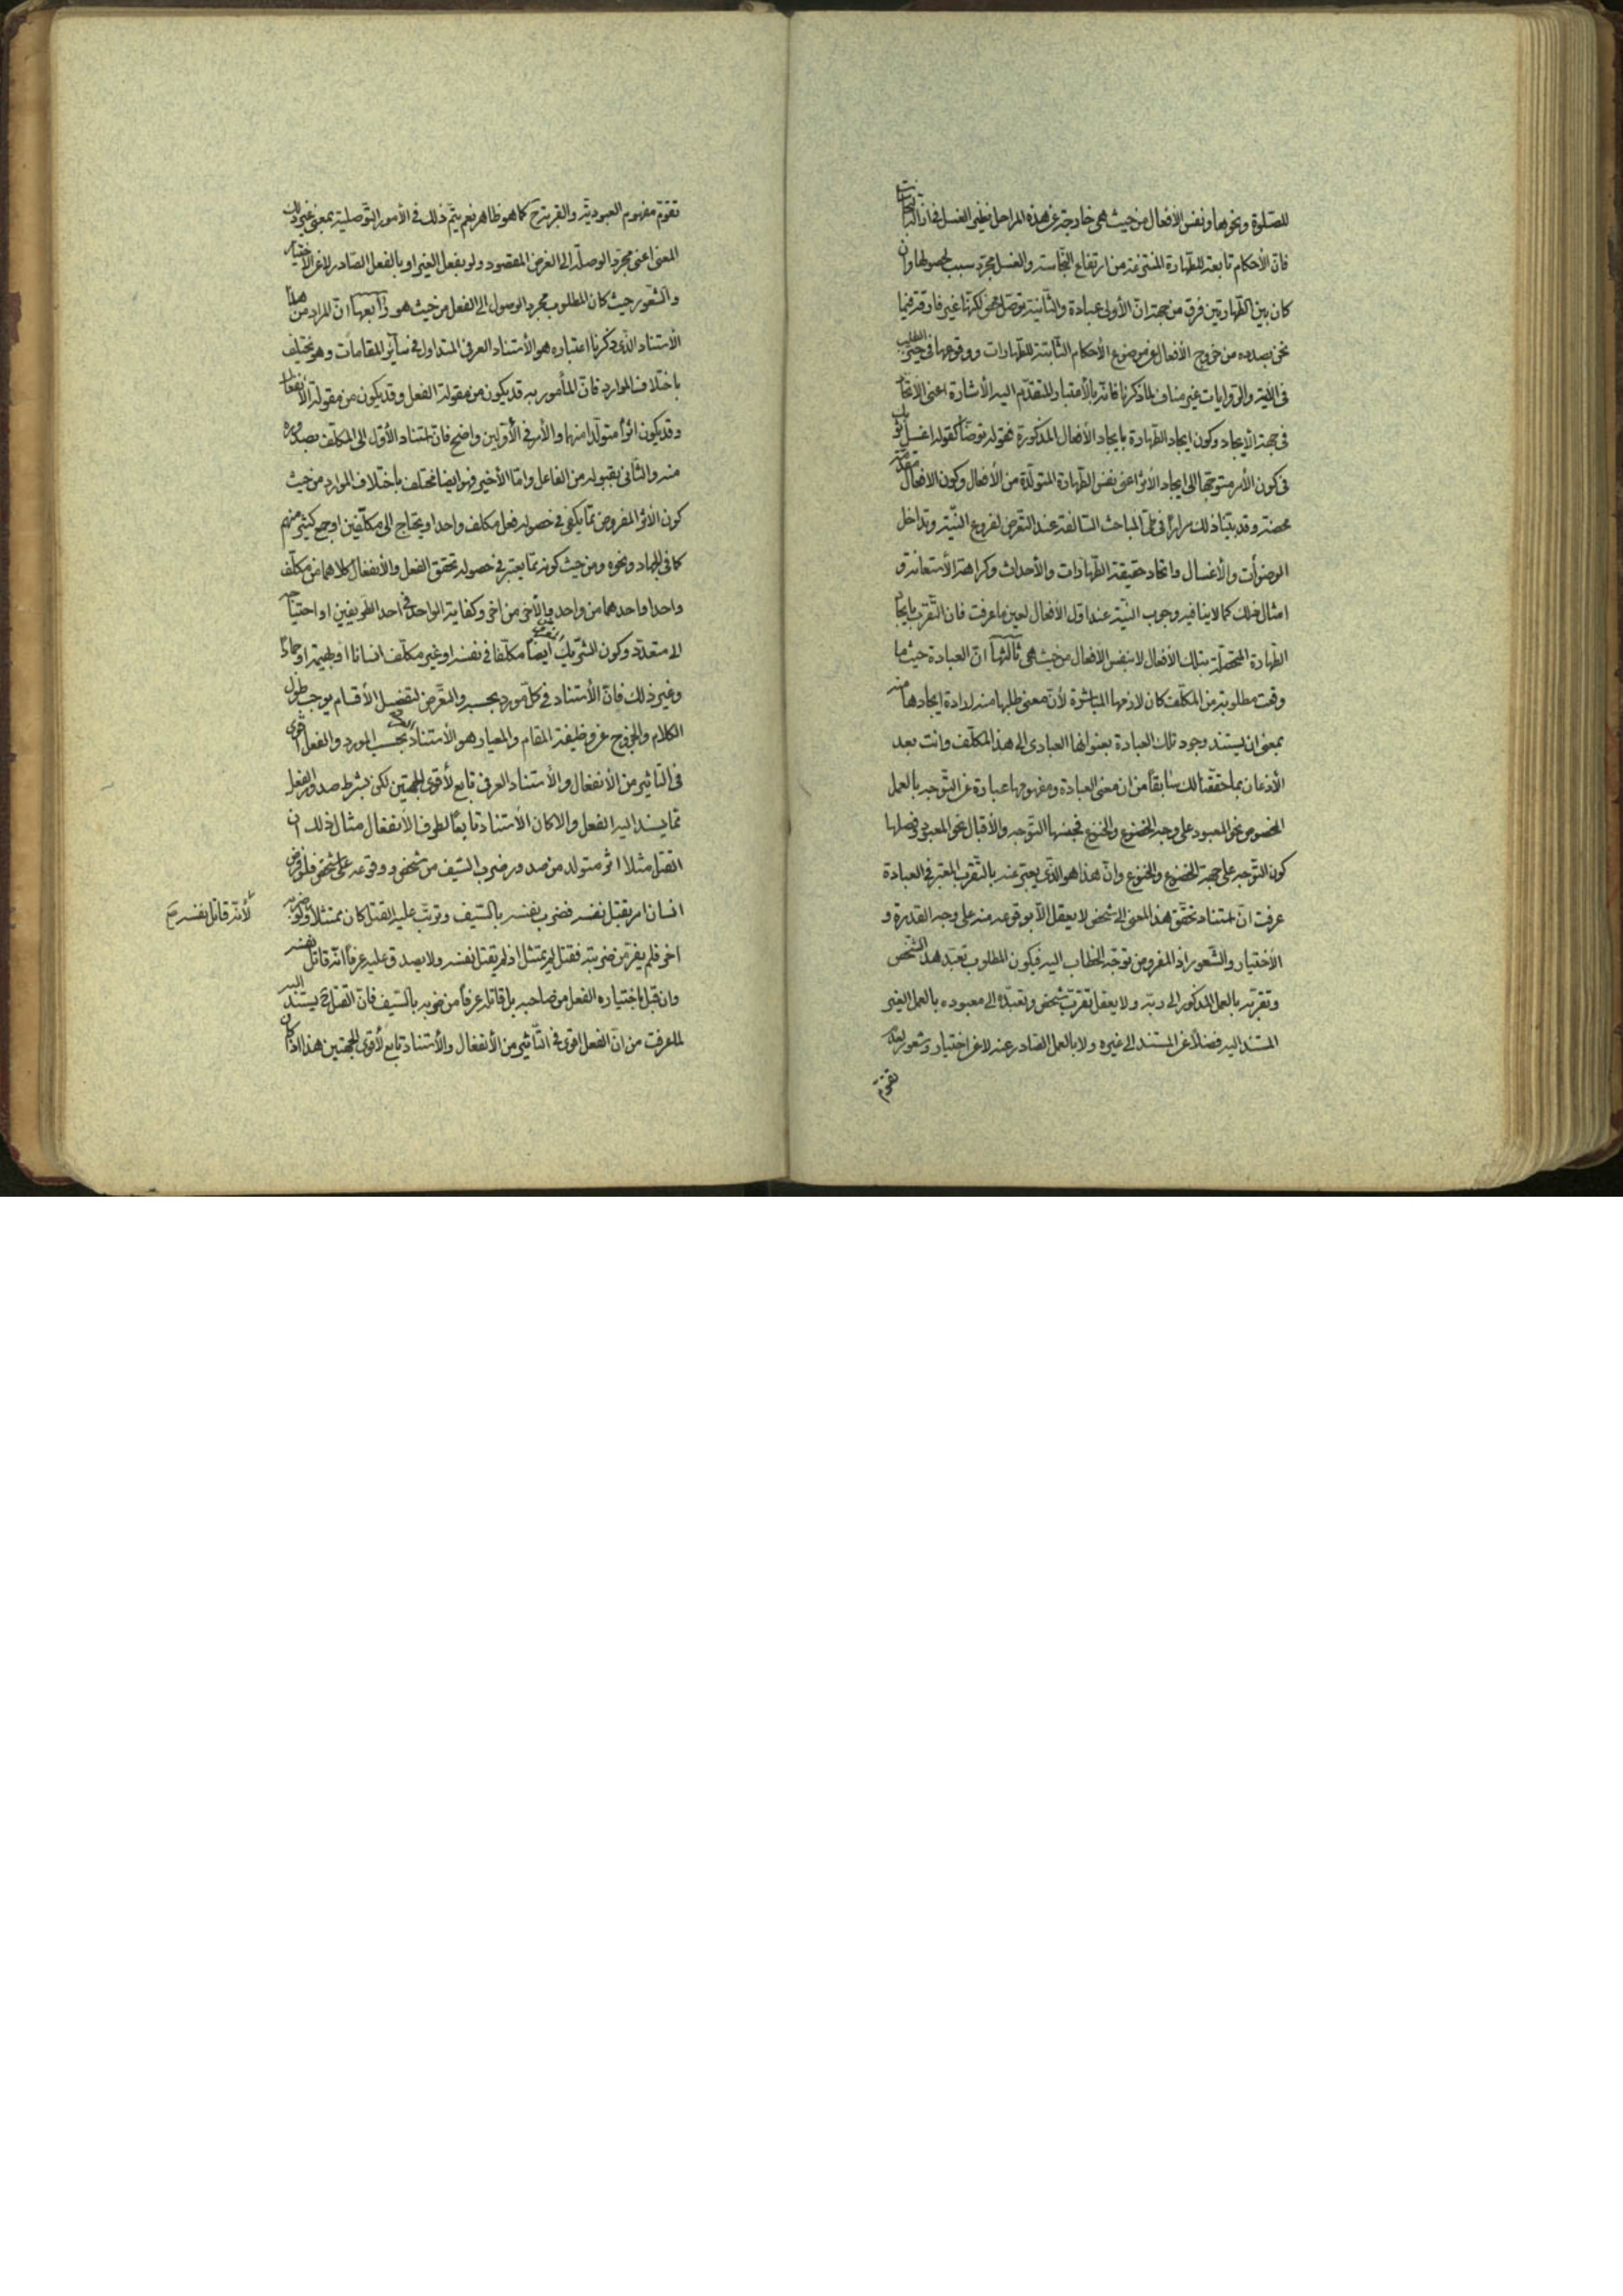 للصلوة ونحوها ونفس الأفعال من حيث هى خارجة عن هذه المراحل نظير الغسل فى ازالة النجاسات
فان الأحكام تابعة للطهارة المنتزعة من ارتفاع النجاسة والغسل مجرد سبب لحصولها وان
كان بين الطهارتين فرق من جهة ان الأولى عبادة والثانية توصل محض لكنها غير فارقة فيما
نحن بصدده من خروج الأفعال عن موضوع الأحكام الثابتة للطهارات ووقوعها فى حيز الطلب
فى الآية والروايات غير مناف لما ذكرنا فانه بالأعتبار المتقدم اليه الأشارة اعنى الاتحاد
فى جهة الأيجاد وكون ايجاد الطهارة بايجاد الأفعال المذكورة فقوله توضأ كقوله اغسل ثوبك
فى كون الأمر متوجها الى ايجاد الأثر اعنى نفس الطهارة المتولدة من الأفعال وكون الافعال مقدمة
محضة وقد بينا ذلك مرارا فى طى المباحث السالفة عند التعرض لفروع النية وتداخل
الوضوأت والأغسال واتحاد حقيقة الطهارات والأحداث وكراهة الأستعانة و
امثال ذلك كما لا ينافيه وجوب النية عند اول الأفعال لعين ما عرفت فان التقرب بايجاد
الطهارة المتحصلة بتلك الأفعال لا بنفس الأفعال من حيث هى ثالثها ان العبادة حيث ما
وقعت مطلوبة من المكلف كان لازمها المباشرة لأن معنى طلبها منه ارادة ايجادها منه
بمعنى ان يستند وجود تلك العبادة بعنوانها العبادى الى هذا المكلف وانت بعد
الأذعان بما حققنا لك سابقا من ان معنى العبادة ومفهومها عبارة عن التوجه بالعمل
المخصوص نحو المعبود على وجه الخضوع والخشوع فجنسها التوجه والأقبال نحو المعبود وفصلها
كون التوجه على جهة الخضوع والخشوع وان هذا هو الذى يعبر عنه بالتقرب المعتبر فى العبادة
عرفت ان استناد تحقق هذا المعنى الى شخص لا يعقل الا بوقوعه منه على وجه القدرة و
الأختيار والشعور اذ المفروض توجه الخطاب اليه فيكون المطلوب تعبد هذا الشخص
وتقربه بالعمل المذكور الى ربه ولا يعقل تقرب شخص وتعبده الى معبوده بالعمل الغير
المستند اليه فضلا عن المستند الى غيره ولا بالعمل الصادر عنه لا عن اختيار وشعور لعدم
تقوم
تقوم مفهوم العبودية والقربة ح كما هو ظاهر نعم يتم ذلك فى الأمور التوصلية بمعنى غير ذلك
المعنى اعنى مجرد الوصلة الى الغرض المقصود ولو بفعل الغير او بالفعل الصادر لا عن الأختيار
والشعور حيث كان المطلوب مجرد الوصول الى الفعل من حيث هو رابعها ان المراد من هذا
الأستناد الذى ذكرنا اعتباره هو الأستناد العرفى المتداول فى سائر المقامات وهو مختلف
باختلاف الموارد فان المأمور به قد يكون من مقولة الفعل وقد يكون من مقولة الأنفعال
وقد يكون اثرا متولدا منهما والأمر فى الأولين واضح فان استناد الأول الى المكلف بصدوره
منه والثانى بقبوله من الفاعل واما الأخير فهو ايضا مختلف باختلاف الموارد من حيث
كون الأثر المفروض مما يكفى فى حصوله فعل مكلف واحد او يحتاج الى مكلفين او جمع كثير منهم
كما فى الجهاد ونحوه ومن حيث كونه مما يعتبر فى حصوله تحقق الفعل والأنفعال كلاهما من مكلف
واحد او احدهما من واحد والأخر من اخر وكفاية الواحد فى احد الطرفين او احتياجه
الى متعدد وكون الشريك ايضا مكلفا فى نفسه او غير مكلف انسانا او بهيمة او جمادا
وغير ذلك فان الأستناد فى كل مورد بحسبه والتعرض لتفصيل الأقسام يوجب طول
الكلام والخروج عن وظيفة المقام والمعيار هو الأستناد العرفى بحسب المورد والفعل اقوى
فى التاثير من الأنفعال والأستناد العرفى تابع لأقوى الجهتين لكن بشرط صدور الفعل
مما يسند اليه الفعل والا كان الأستناد تابعا لطرف الأنفعال مثال ذلك ان
القتل مثلا اثر متولد من صدور ضرب السيف من شخص ووقوعه على شخص فلو فرض
انسان امر بقتل نفسه فضرب نفسه بالسيف وترتب عليه القتل كان ممتثلا ولو ضربه
لأنه قاتل نفسه صح
اخر فلم يفر من ضربته فقتل لم يمتثل اذ لم يقتل نفسه ولا يصدق عليه عرفا انه قاتل نفسه
وان قبل باختياره الفعل من صاحبه بل قاتله عرفا من ضربه بالسيف فان القتل ح يستند اليه
لما عرفت من ان الفعل اقوى فى التأثير من الأنفعال والأستناد تابع لأقوى الجهتين هذا اذا كان